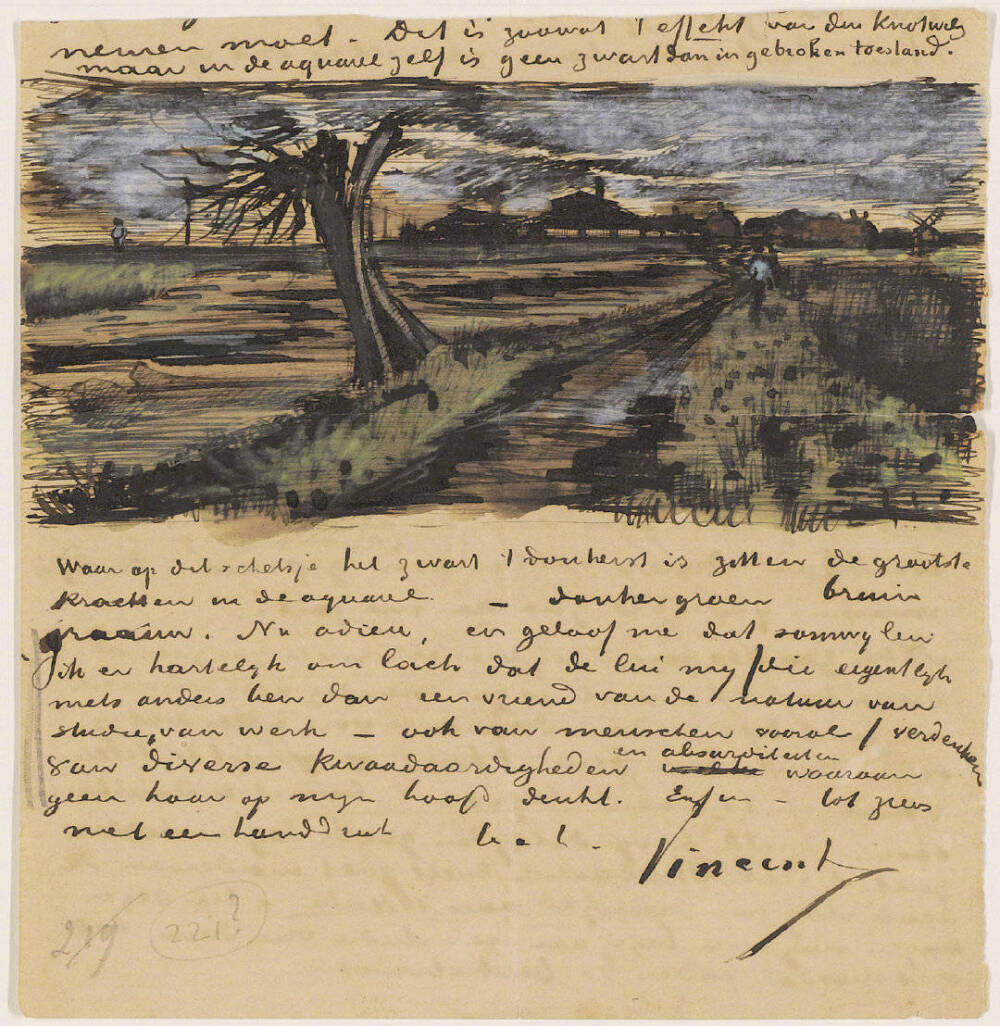 nemen moet – Dit is zoowat 't effekt van den Knotwilg
maar in de aquarel zelf is geen zwart dan in gebroken toestand.
Waar op dit schetsje het zwart 't donkerst is zitten de grootste
krachten in de aquarel – donkergroen bruin
graauw. Nu adieu, en geloof me dat somwylen
ik er hartelyk om lach dat de lui my /die eigentlyk
niets anders ben dan een vriend van de natuur van
studie, van werk – ook van menschen vooral/ verdenken
van diverse kwaadaardigheden en absurditeiten waaraan
geen haar op myn hoofd denkt. Enfin – tot ziens
met een handdruk
t. à t.
Vincent
219 221?